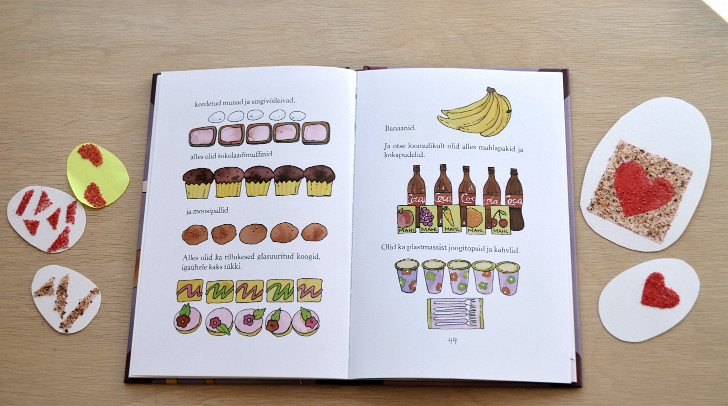 keedetud munad ja singivõileivad,
alles olid kokolaadimuffinid
ja moosipallid.
Alles olid ka tillukesed glasuuritud koogid,
igaühele kaks tükki.
Banaanid.
Ja otse loomulikult olid alles mahlapakid ja
kokapudelid.
Coca Coca Coca Coca
MAHL MAHL MAHL MAHL MAHL
Olid ka plastmassist joogitopsid ja kahvlid.
49